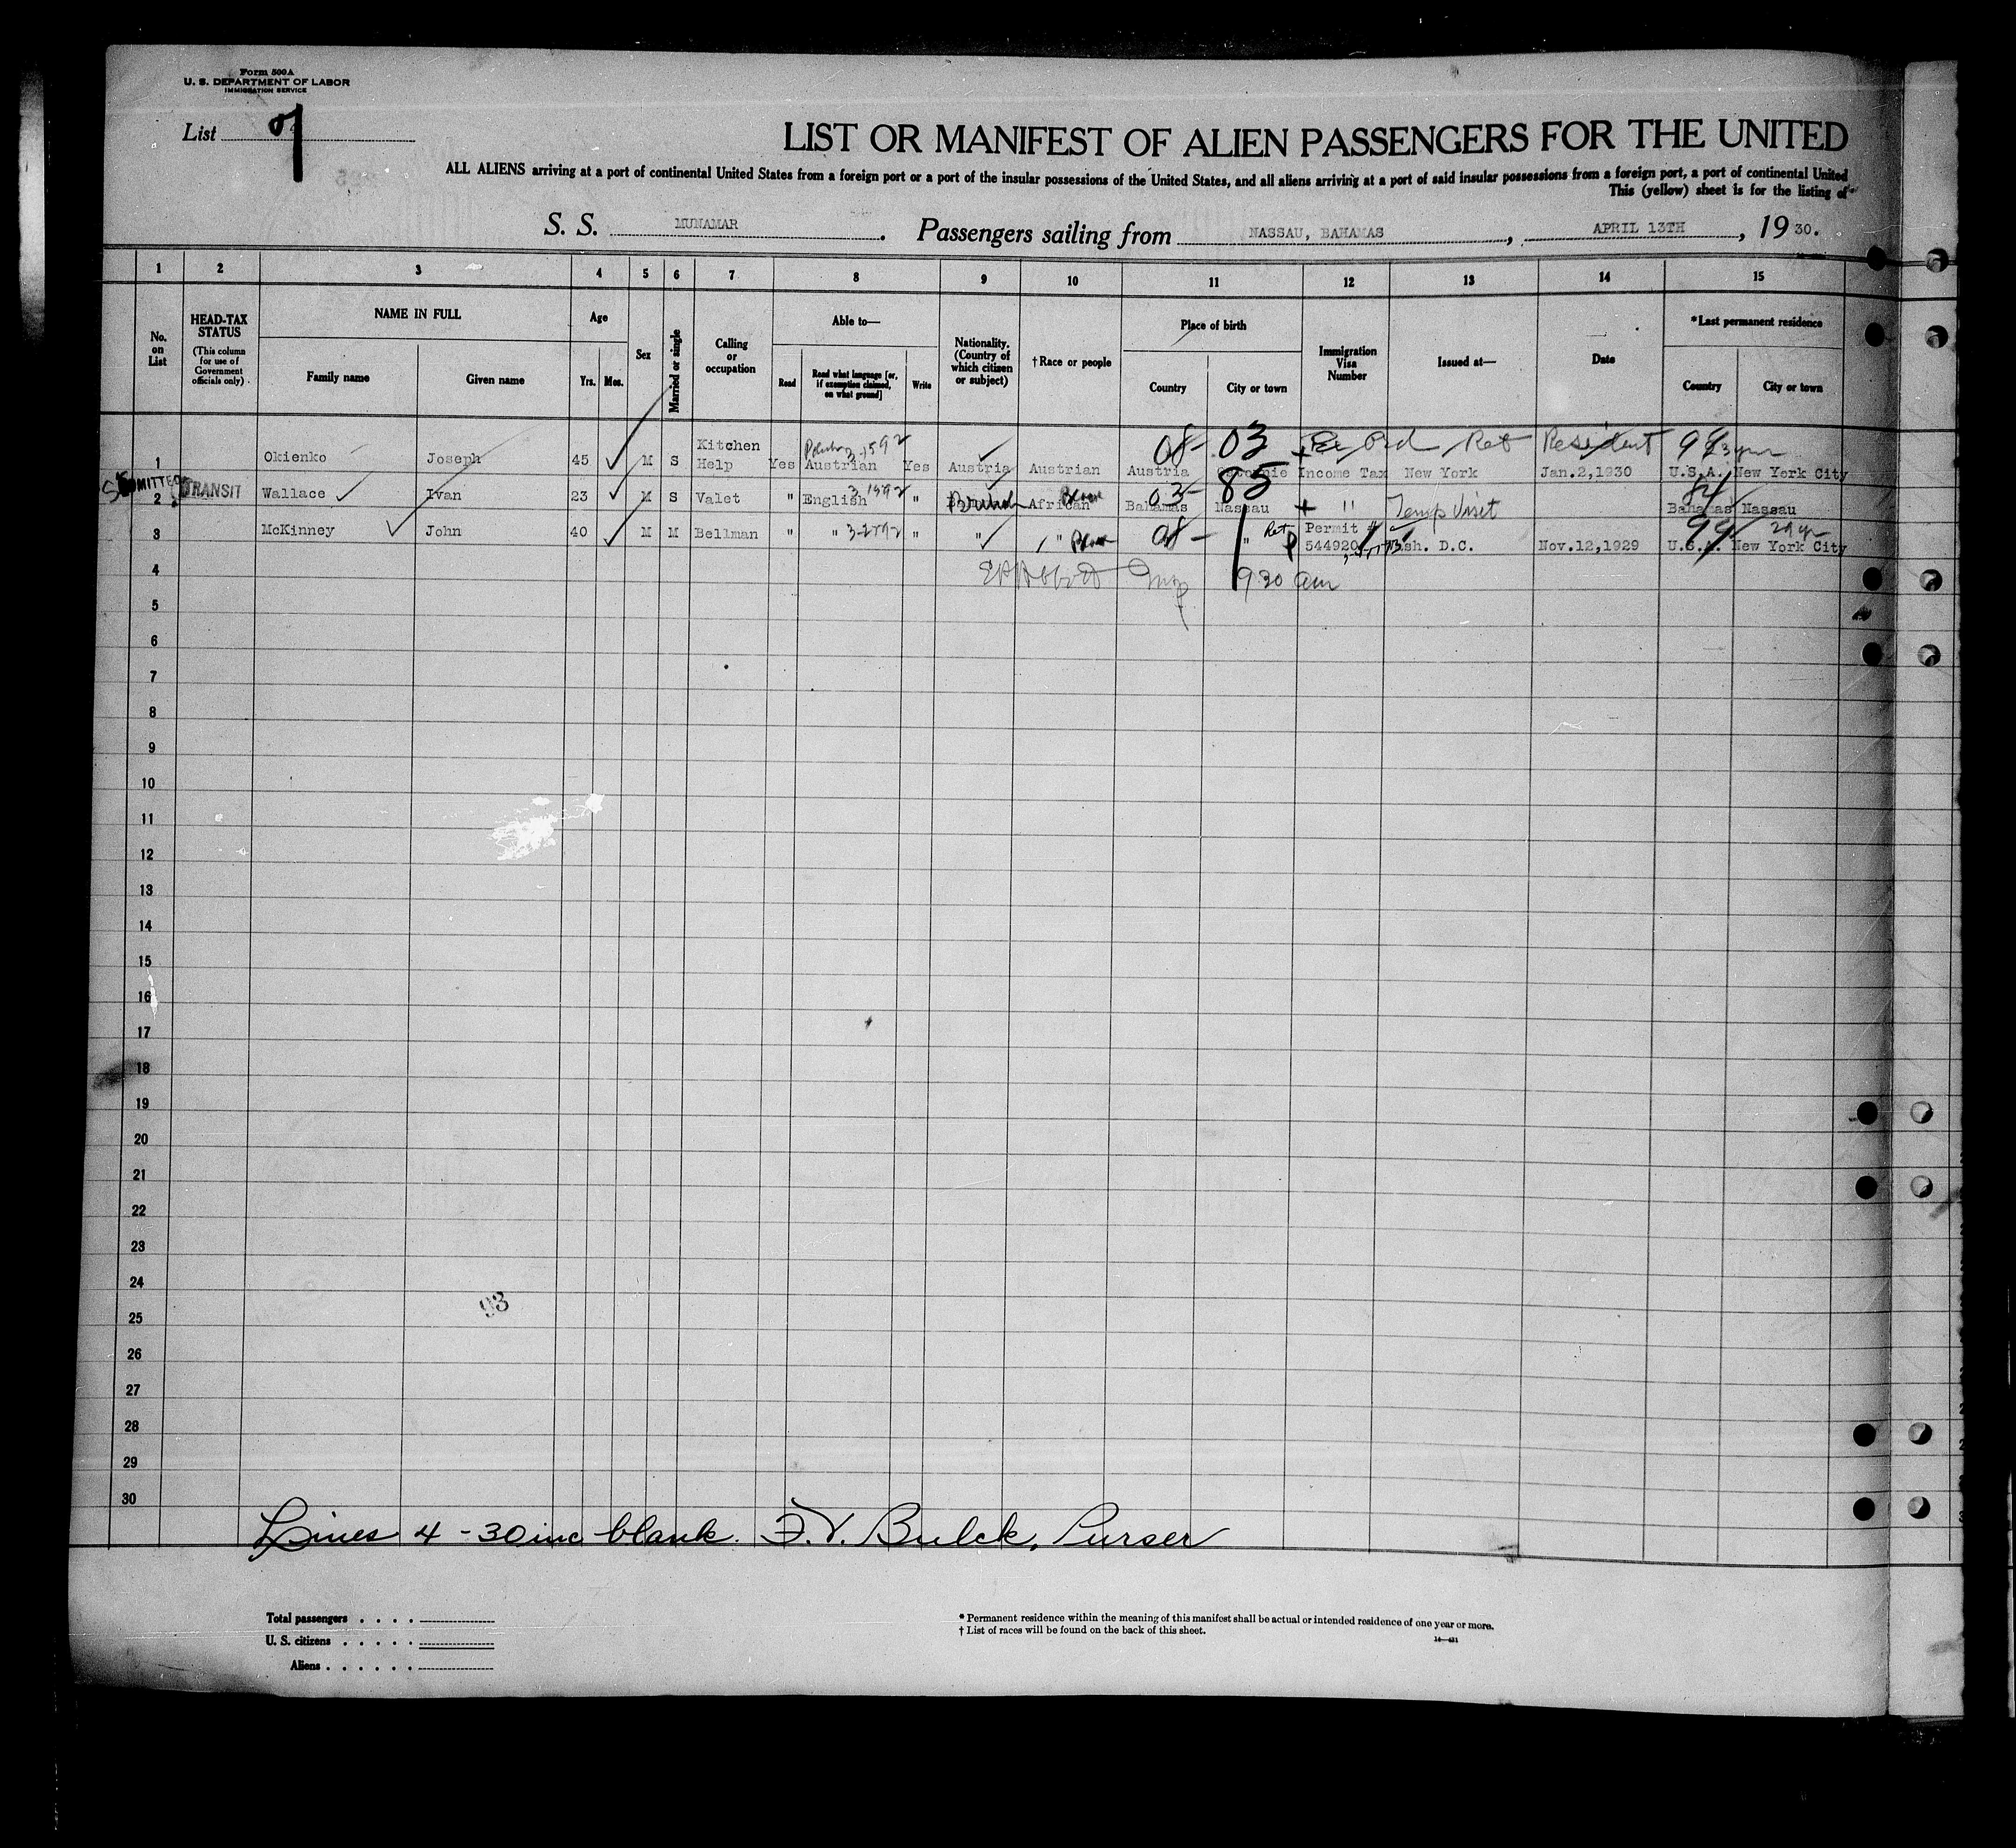 Form 500A
U. S. DEPARTMENT OF LABOR
IMMIGRATION SERVICE
List
LIST OR MANIFEST OF ALIEN PASSENGERS FOR THE UNITED
ALL ALIENS arriving at a port of continental United States from a foreign port or a port of the insular possessions of the United States, and all aliens arriving at a port of said insular possessions from a foreign port, a port of continental United
This (yellow) sheet is for the listing of
S. S. MUNAMAR. Passengers sailing from NASSAU, BAHAMAS, APRIL 13TH, 1930.
1 2 3 4 5 6 7 8 9 10 11 12 13 14 15
No. on List
HEAD-TAX STATUS
(This column for use of Government officials only)
NAME IN FULL
Family name Given name
Age
Yrs. Mos.
Sex
Married or single
Calling or occupation
Able to—
Read
Read what language [or, if exemption claimed, on what ground]
Write
Nationality. (Country of which citizen or subject)
†Race or people
Place of birth
Country City or town
Immigration Visa Number
Issued at—
Date
*Last permanent residence
Country City or town
08- 03 Ret Resident 99
1 Okienko Joseph 45 M S Kitchen Help Yes Austrian Yes Austria Austrian Austria Income Tax New York Jan.2,1930 U.S.A. New York City
ADMITTED
TRANSIT
03- 85
2 Wallace Ivan 23 M S Valet " English " British African Black Bahamas Nassau + " Temp Visit Bahamas Nassau
3 McKinney John 40 M M Bellman " " " " " Black 08- " Ret Permit # 544920 Wash. D.C. Nov.12,1929 U.S.A. New York City
99
4 930 am
5
6
7
8
9
10
11
12
13
14
15
16
17
18
19
20
21
22
23
24
93
25
26
27
28
29
30
Lines 4 - 30 inc blank. F.V. Bulck, Purser
Total passengers . . . .
U. S. citizens . . . . .
Aliens . . . . . .
* Permanent residence within the meaning of this manifest shall be actual or intended residence of one year or more.
† List of races will be found on the back of this sheet.